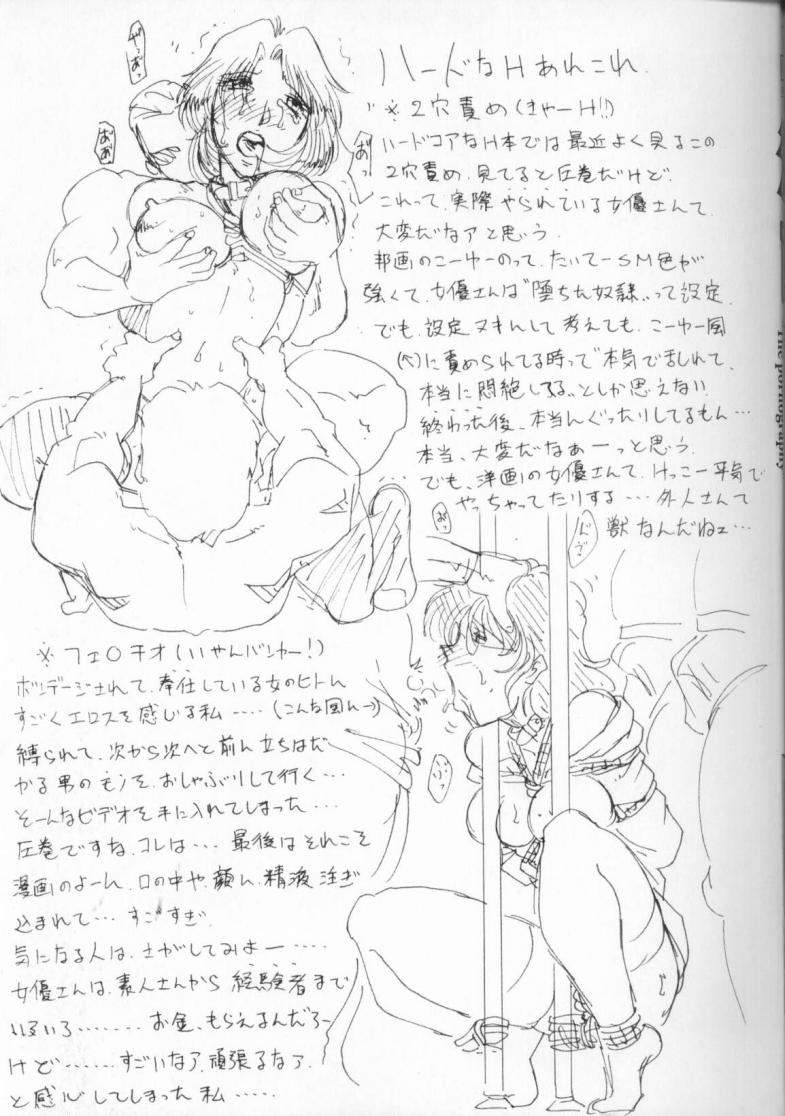 ハードなHあれこれ
※2穴責め(きゃーH!!)
ハードコアなH本では最近よく見るこの
2穴責め、見てると圧巻だけど、
これって、実際やられている女優さんて、
大変だなアと思う
邦画のこーゆーのって、たいてーSM色が
強くて、女優さんは"堕ちた奴隷"って設定、
でも、設定ヌキにして考えても、こーゆー風
(↖)に責められてる時って"本気でまいれて、
本当に悶絶してる"としか思えない
終わった後、本当にぐったりしてるもん…
本当、大変だなぁーっと思う
でも、洋画の女優さんて、けっこー平気で
やっちゃってたりする…外人さんて
獣なんだねェ…
The pornography
※フェ○チオ(いやんバンカー!)
ボンデージされて、奉仕している女のヒトに
すごくエロスを感じる私‥‥(こんな図に→)
縛られて、次から次へと前に立ちはだ
かる男のモノを、おしゃぶりして行く…
そーんなビデオを手に入れてしまった…
圧巻ですね、コレは…最後はそれこそ
漫画のよーに、口の中や、顔に、精液注ぎ
込まれて…すごすぎ
気になる人は、さがしてみよー‥‥
女優さんは、素人さんから経験者まで
いろいろ‥‥‥お金、もらえるんだろー
けど‥‥‥すごいなア、頑張るなア、
と感心してしまった私‥‥
おっ
ああ
おっ